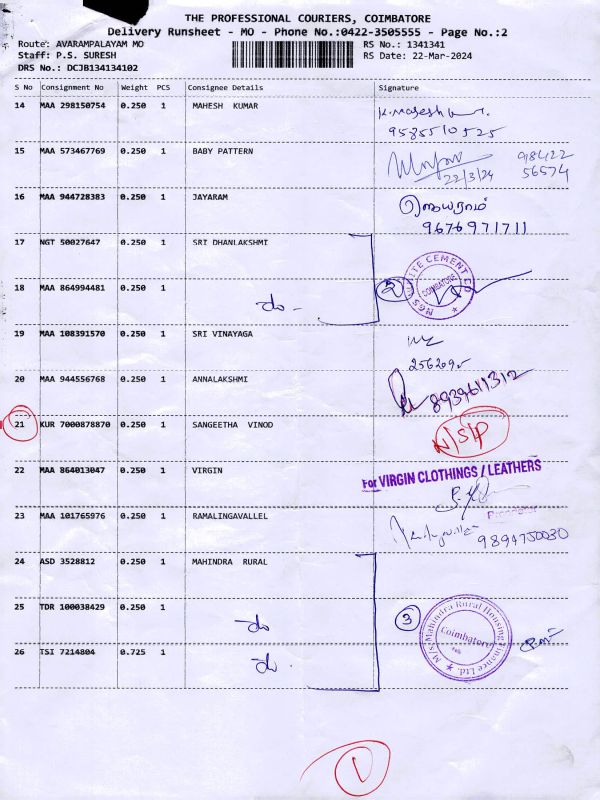 THE PROFESSIONAL COURIERS, COIMBATORE
Delivery Runsheet - MO - Phone No.:0422-3505555 - Page No.:2
Route: AVARAMPALAYAM MO RS No.: 1341341
Staff: P.S. SURESH RS Date: 22-Mar-2024
DRS No.: DCJB134134102
S No Consignment No Weight PCS Consignee Details Signature
14 MAA 298150754 0.250 1 MAHESH KUMAR K.Mahesh
9585510525
15 MAA 573467769 0.250 1 BABY PATTERN 98422
22/3/24 56574
16 MAA 944728383 0.250 1 JAYARAM ஜெயராம்
9676971711
17 NGT 50027647 0.250 1 SRI DHANLAKSHMI
18 MAA 864994481 0.250 1 do - 2 NGS WHITE CEMENT CO COIMBATORE
19 MAA 108391570 0.250 1 SRI VINAYAGA
20 MAA 944556768 0.250 1 ANNALAKSHMI 8939611312
21 KUR 7000878870 0.250 1 SANGEETHA VINOD N/S/P
22 MAA 864013047 0.250 1 VIRGIN For VIRGIN CLOTHINGS / LEATHERS
Proprietor
23 MAA 101765976 0.250 1 RAMALINGAVALLEL 9894750030
24 ASD 3528812 0.250 1 MAHINDRA RURAL
25 TDR 100038429 0.250 1 do 3 M/s Mahindra Rural Housing Finance Ltd. Coimbatore
26 TSI 7214804 0.725 1 do.
1